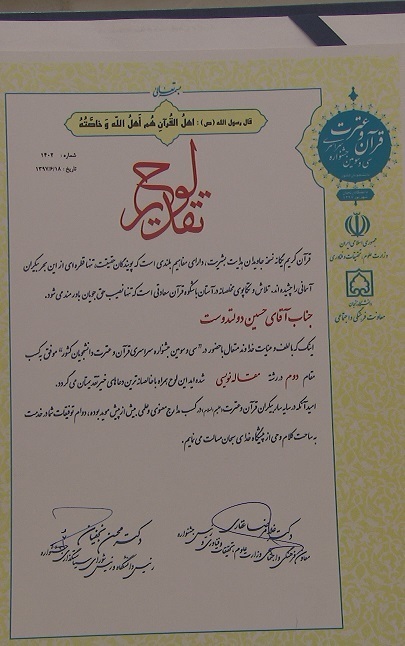 بسمه تعالی
قال رسول الله (ص) : اهلُ القُرآنِ هُم اَهلُ اللّه وَ خاصَّتُهُ
شماره : ۱۴۰۲
تاریخ : ۱۳۹۷/۶/۱۸
لوح تقدیر
قرآن و عترت
سی و سومین جشنواره سراسری
جمهوری اسلامی ایران
وزارت علوم، تحقیقات و فناوری
معاونت فرهنگی و اجتماعی
قرآن کریم یگانه نسخه جاویدان هدایت بشریت، دارای مفاهیم بلندی است که پویندگان حقیقت، تنها قطره ای از این بحر بیکران
آسمانی را چشیده اند، تلاش و تکاپوی مخلصانه در آستان باشکوه قرآن سعادتی است که تنها نصیب حق جویان باورمند می شود.
جناب آقای حسین دولتدوست
اینک که با لطف و عنایت خداوند متعال با حضور در "سی و سومین جشنواره سراسری قرآن و عترت دانشجویان کشور" موفق به کسب
مقام دوم در رشته مقاله نویسی شده اید این لوح همراه با خالصانه ترین دعاهای خیر تقدیمتان می گردد.
امید آنکه در سایه سار بیکران قرآن و عترت (علیهم السلام) در کسب مدارج معنوی و علمی بیش از پیش موید بوده، دوام توفیقات شما در خدمت
به ساحت کلام وحی از پیشگاه خدای سبحان مسالت می نمایم.
دکتر غلامرضا غفاری
معاون فرهنگی و اجتماعی وزارت علوم، تحقیقات و فناوری و رئیس جشنواره
دکتر محسن
رئیس دانشگاه و رئیس شورای سیاستگذاری جشنواره